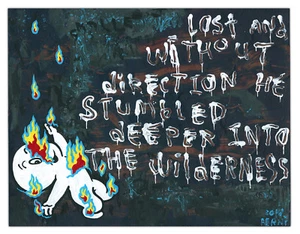 LOST AND
WITHOUT
DIRECTION HE
STUMBLED
DEEPER INTO
THE WILDERNESS